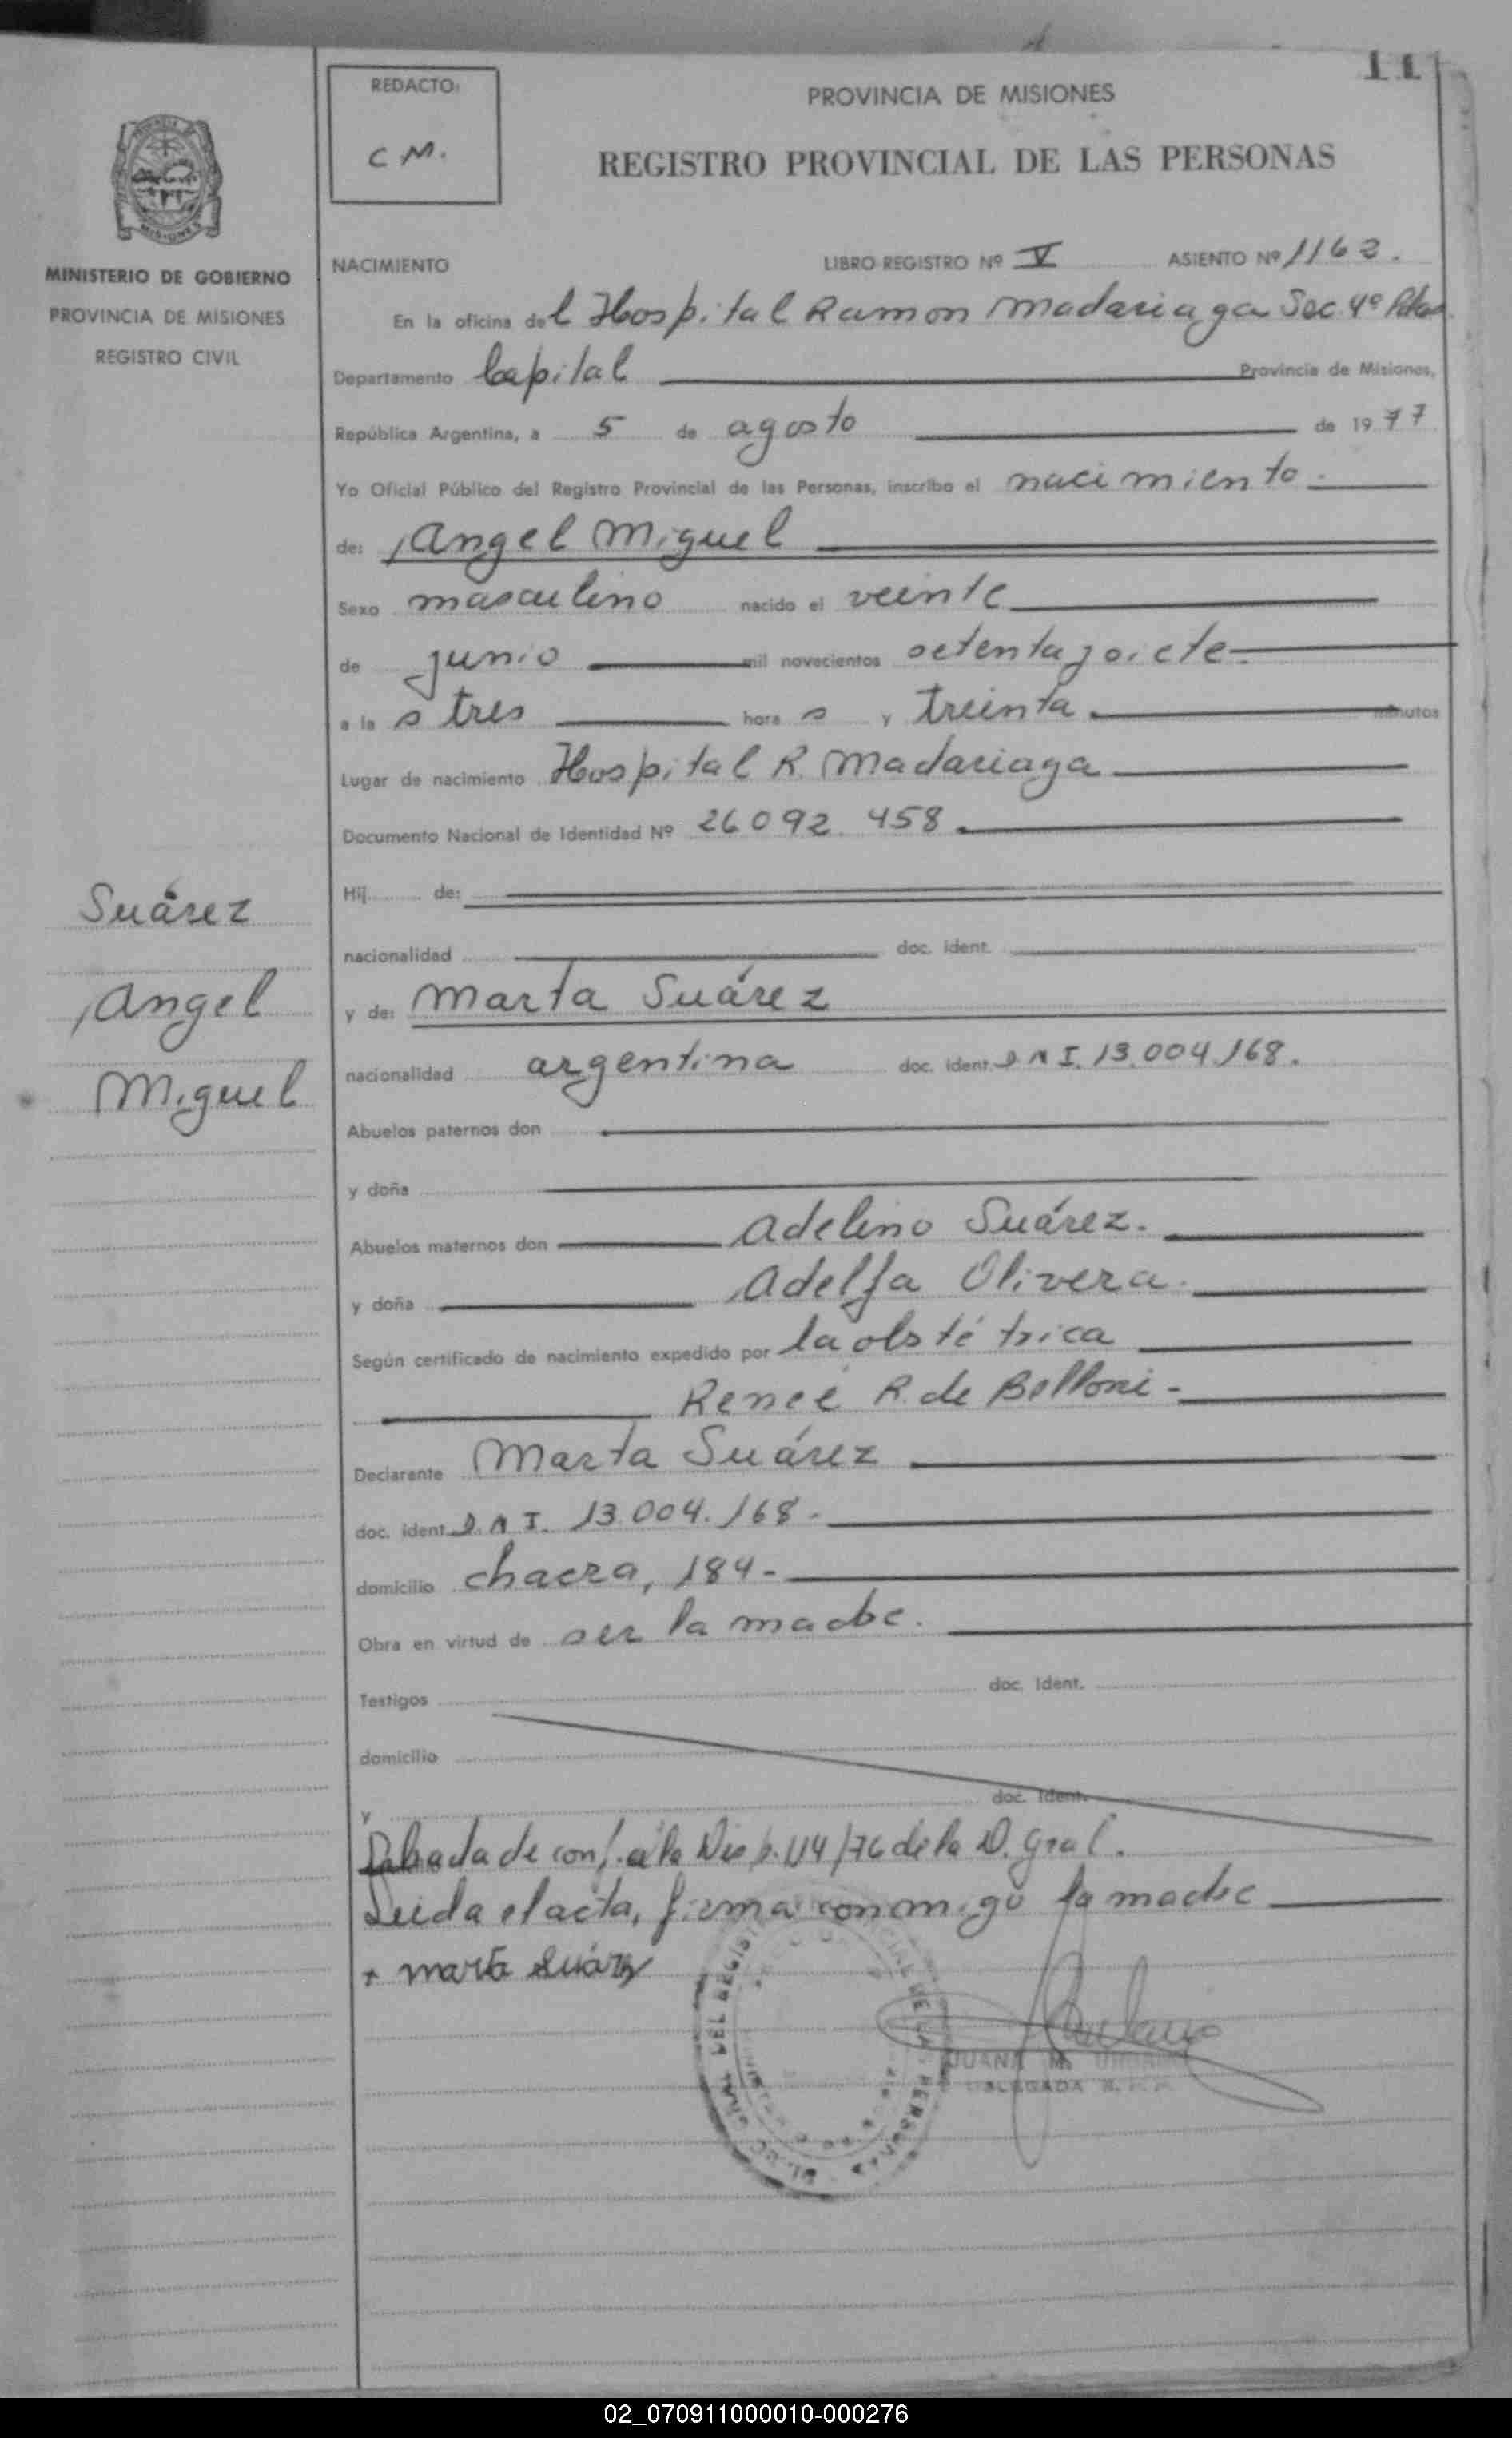 11
REDACTO:
C M.
PROVINCIA DE MISIONES
REGISTRO PROVINCIAL DE LAS PERSONAS
MINISTERIO DE GOBIERNO
PROVINCIA DE MISIONES
REGISTRO CIVIL
NACIMIENTO LIBRO REGISTRO Nº V ASIENTO Nº 1163.
En la oficina del Hospital Ramon Madariaga Sec. 4º
Departamento Capital Provincia de Misiones,
República Argentina, a 5 de agosto de 1977
Yo Oficial Público del Registro Provincial de las Personas, inscribo el nacimiento.
de: Angel Miguel
Sexo masculino nacido el veinte
de junio mil novecientos setenta y siete.
a las tres horas y treinta minutos
Lugar de nacimiento Hospital R. Madariaga
Documento Nacional de Identidad Nº 26092.458
Hij de:
nacionalidad doc. ident.
y de: Marta Suárez
nacionalidad argentina doc. ident. D N I. 13.004.168.
Abuelos paternos don
y doña
Abuelos maternos don Adelino Suárez.
y doña Adelfa Olivera.
Según certificado de nacimiento expedido por la obstétrica
Reneé R. de Belloni -
Declarante Marta Suárez
doc. ident. D. N I. 13.004.168.
domicilio chacra, 184-
Obra en virtud de ser la madre.
Testigos doc. Ident.
domicilio
y doc. Ident.
de conf. a la Disp. 114/76 de la D. Gral.
Leida el acta, firma conmigo la madre
+ marta Suárez
JUANA M.
DELEGADA
Suárez
Angel
Miguel
02_070911000010-000276